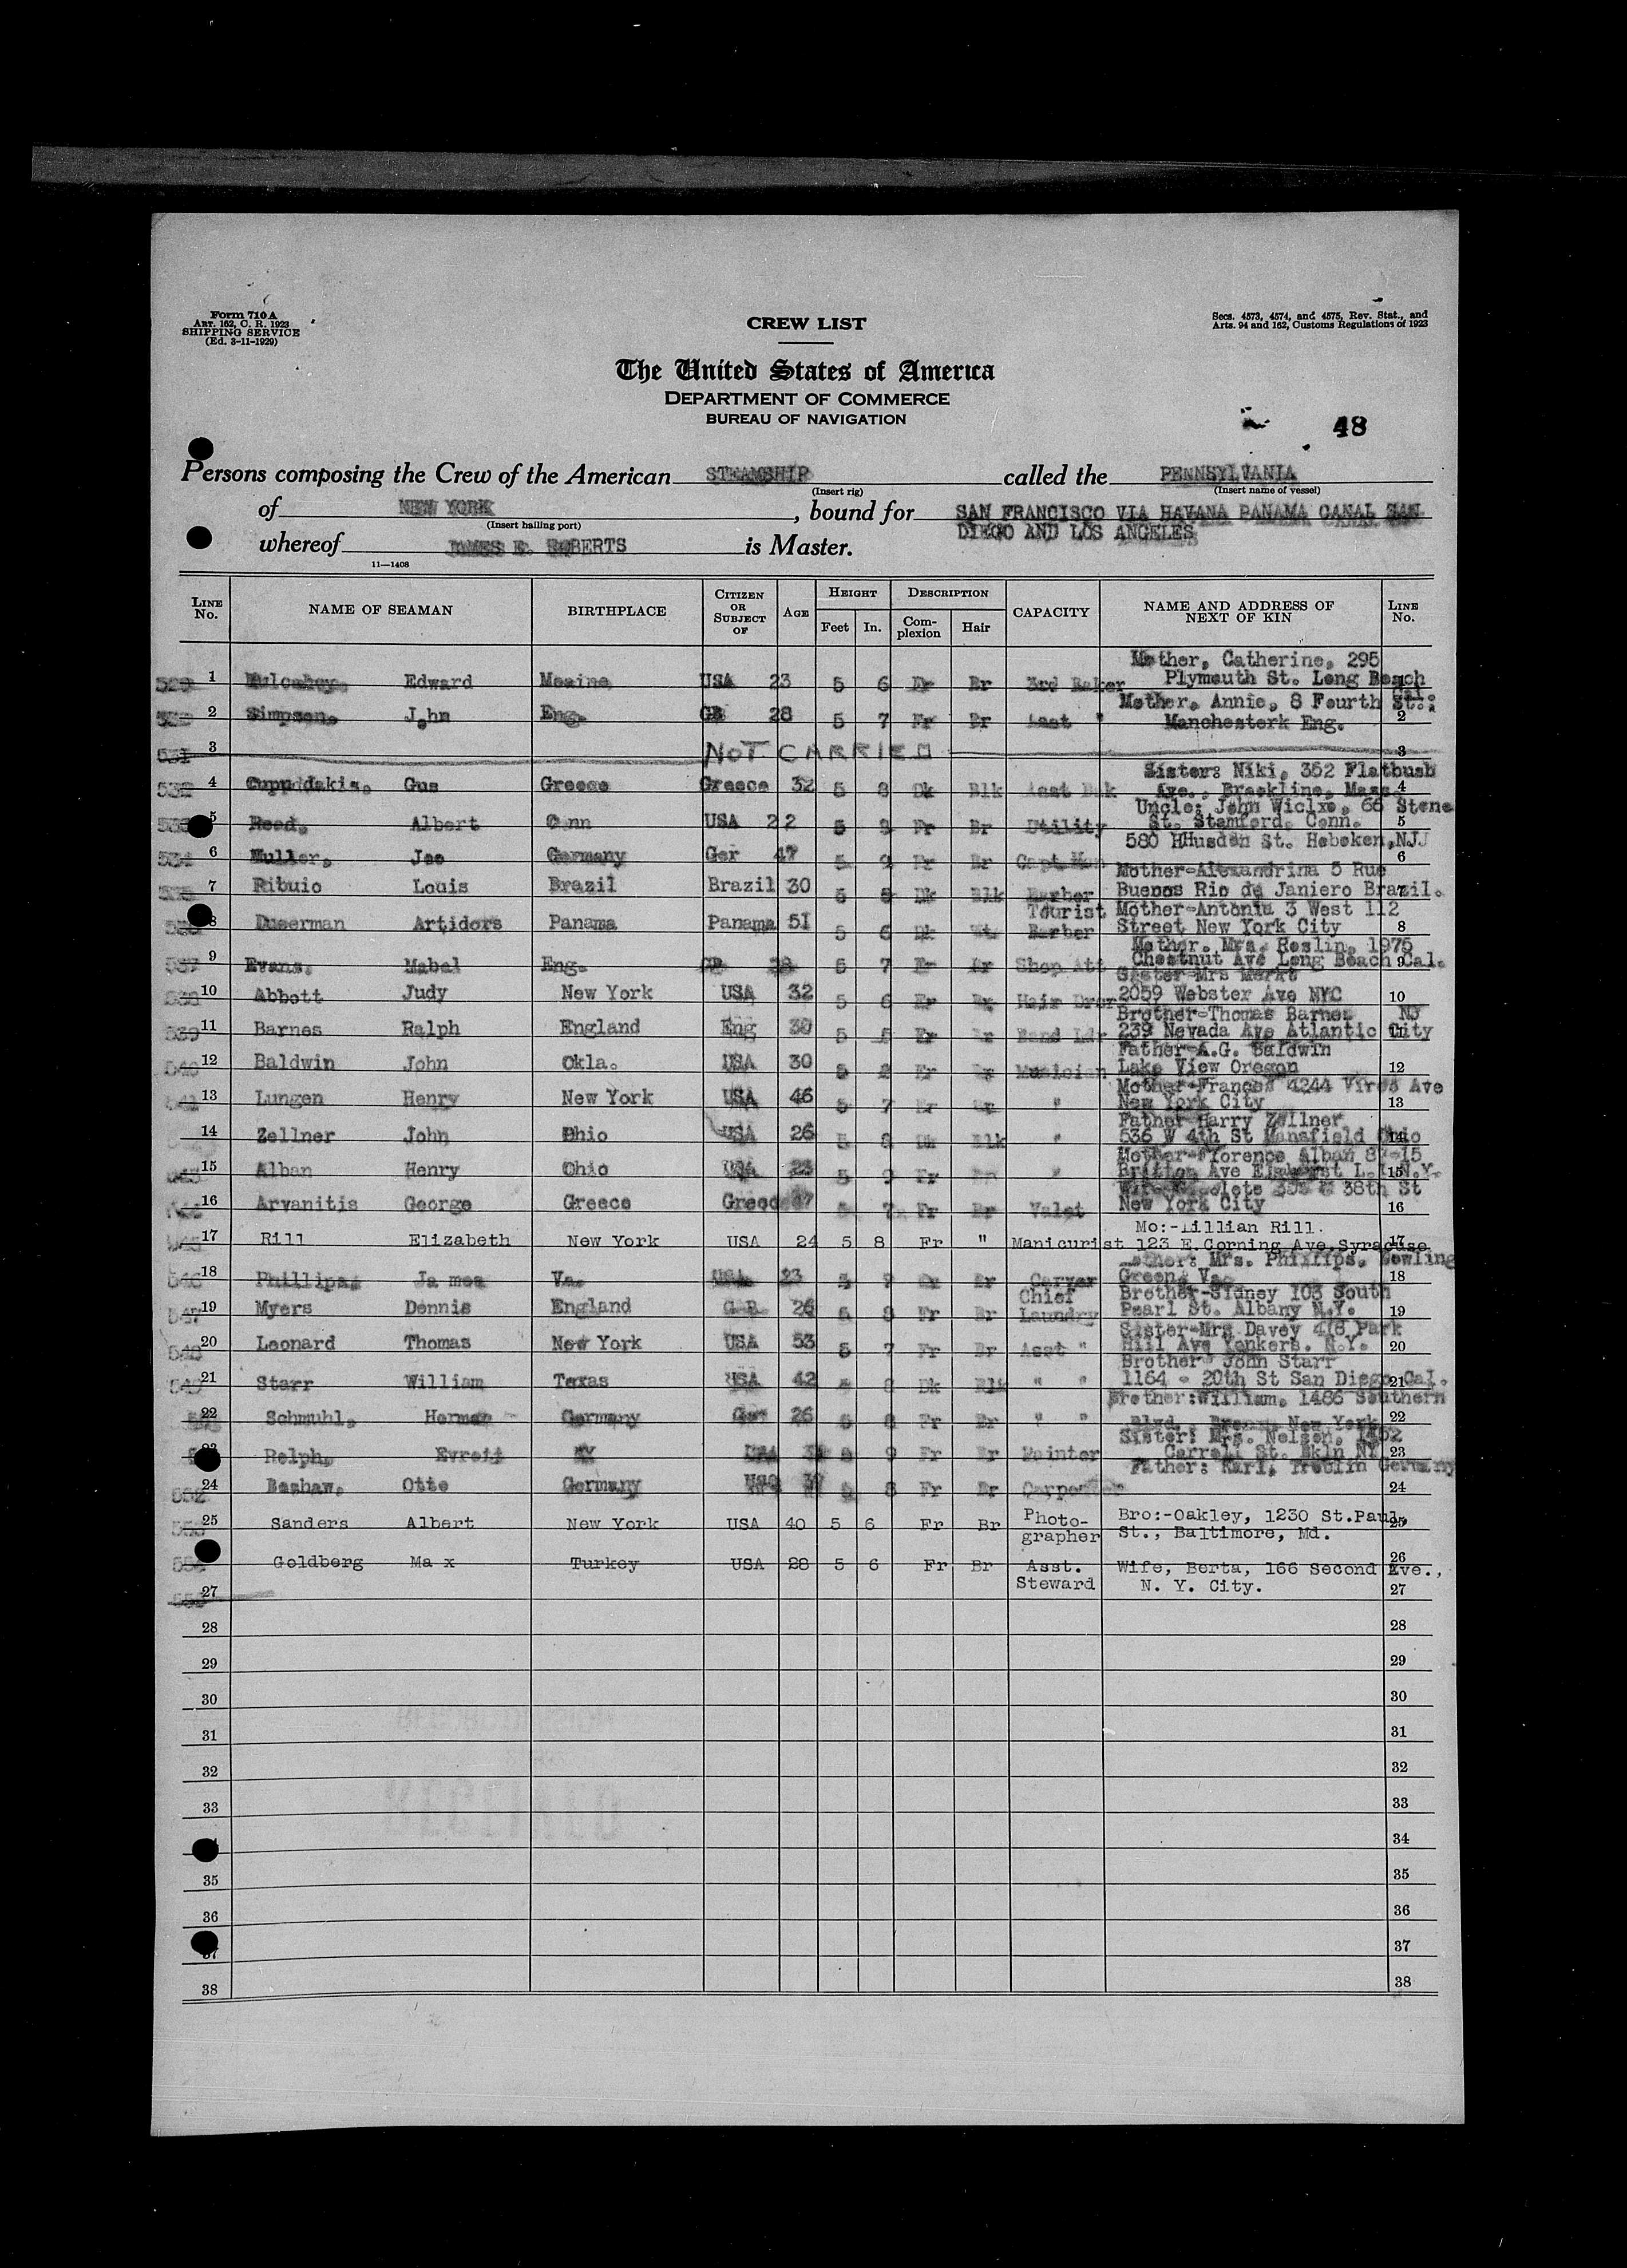 Form 710 A
ART. 162, C. R. 1923
SHIPPING SERVICE
(Ed. 3-11-1929)
CREW LIST
Secs. 4573, 4574, and 4575, Rev. Stat., and
Arts. 94 and 162, Customs Regulations of 1923
The United States of America
DEPARTMENT OF COMMERCE
BUREAU OF NAVIGATION
48
Persons composing the Crew of the American STEAMSHIP called the PENNSYLVANIA
(Insert rig) (Insert name of vessel)
of NEW YORK, bound for SAN FRANCISCO VIA HAVANA PANAMA CANAL SAN
(Insert hailing port) DIEGO AND LOS ANGELES
whereof JAMES E. ROBERTS is Master.
11—1408
LINE No. NAME OF SEAMAN BIRTHPLACE CITIZEN OR SUBJECT OF AGE HEIGHT Feet In. DESCRIPTION Complexion Hair CAPACITY NAME AND ADDRESS OF NEXT OF KIN LINE No.
Mother, Catherine, 295
529 1 Mulcahey, Edward Meaine USA 23 5 6 Fr Br 3rd Baker Plymouth St. Long Beach 1
Cal.
Mother, Annie, 8 Fourth St.,
2 Simpson, John Eng. GB 28 5 7 Fr Br Asst " Manchesterk Eng. 2
531 3 NOT CARRIED 3
Sister: Niki, 352 Flatbush
532 4 Gus Greece Greece 32 5 8 Dk Blk Asst Bak Ave., Brookline, Mass 4
Uncle: John 66 Stone
533 5 Reed, Albert Conn USA 22 5 9 Fr Br Utility St. Stamford, Conn. 5
534 6 Muller, Joe Germany Ger 47 5 9 Fr Br Capt Man 580 HHusdon St. Hoboken, NJJ 6
Mother-Alexandrina 5 Rue
7 Ribuio Louis Brazil Brazil 30 5 5 Dk Blk Barber Buenos Rio de Janiero Brazil. 7
Tourist Mother-Antonia 3 West 112
8 Duserman Artidors Panama Panama 51 5 6 Dk Barber Street New York City 8
Mother. Mrs. Roslin, 1975
537 9 Evans, Mabel Eng. GB 38 5 7 Fr Br Shop Att Chestnut Ave Long Beach Cal. 9
Sister-Mrs Merkt
10 Abbott Judy New York USA 32 5 6 Fr Hair Drsr 2059 Webster Ave NYC 10
Brother-Thomas Barnes NJ
539 11 Barnes Ralph England Eng 30 5 5 Fr Br Band Ldr 239 Nevada Ave Atlantic City 11
Father-A.G. Baldwin
540 12 Baldwin John Okla. USA 30 5 8 Fr Musician Lake View Oregon 12
Mother-Frances 4244 Ave
541 13 Lungen Henry New York USA 46 5 7 Fr " New York City 13
Father Harry Zellner
14 Zellner John Ohio USA 26 5 8 Dk Blk " 536 W 4th St Mansfield Ohio 14
Mother-Florence Alban 87-15
15 Alban Henry Ohio USA 23 5 9 Fr " Britton Ave Elmhurst L.I N.Y. 15
38th St
16 Arvanitis George Greece Greece 5 7 Fr Br Valet New York City 16
Mo:-Lillian Rill.
17 Rill Elizabeth New York USA 24 5 8 Fr " Manicurist 123 E.Corning Ave.Syracuse 17
Mrs. Phillips, Bowling
546 18 Phillips, Ja mes Va. USA 23 Br Carver Green, Va. 18
Chief Brother-Sidney 103 South
547 19 Myers Dennis England G.B. 26 5 8 Fr Br Laundry Pearl St. Albany N.Y. 19
Sister-Mrs Davey 418 Park
548 20 Leonard Thomas New York USA 53 5 7 Fr Br Asst " Hill Ave Yonkers. N.Y. 20
Brother John Starr
549 21 Starr William Texas USA 42 5 8 Dk Blk " " 1164 - 20th St San Diego Cal. 21
Brother:William, 1486 Southern
22 Schmuhl, Herman Germany Ger 26 5 8 Fr Br " " Blvd., Bronx, New York 22
Sister: Mrs. Nelson, 1462
23 Relph, Evreit NY USA 5 9 Fr Br Painter Carroll St. Bkln NY 23
Father: Karl, Germany
552 24 Bashaw, Otto Germany USA 5 8 Fr Br Carpenter 24
25 Sanders Albert New York USA 40 5 6 Fr Br Photo- Bro:-Oakley, 1230 St.Paul 25
grapher St., Baltimore, Md.
26 Goldberg Ma x Turkey USA 28 5 6 Fr Br Asst. Wife, Berta, 166 Second Ave., 26
27 Steward N. Y. City. 27
28 28
29 29
30 30
31 31
32 32
33 33
34
35 35
36 36
37 37
38 38